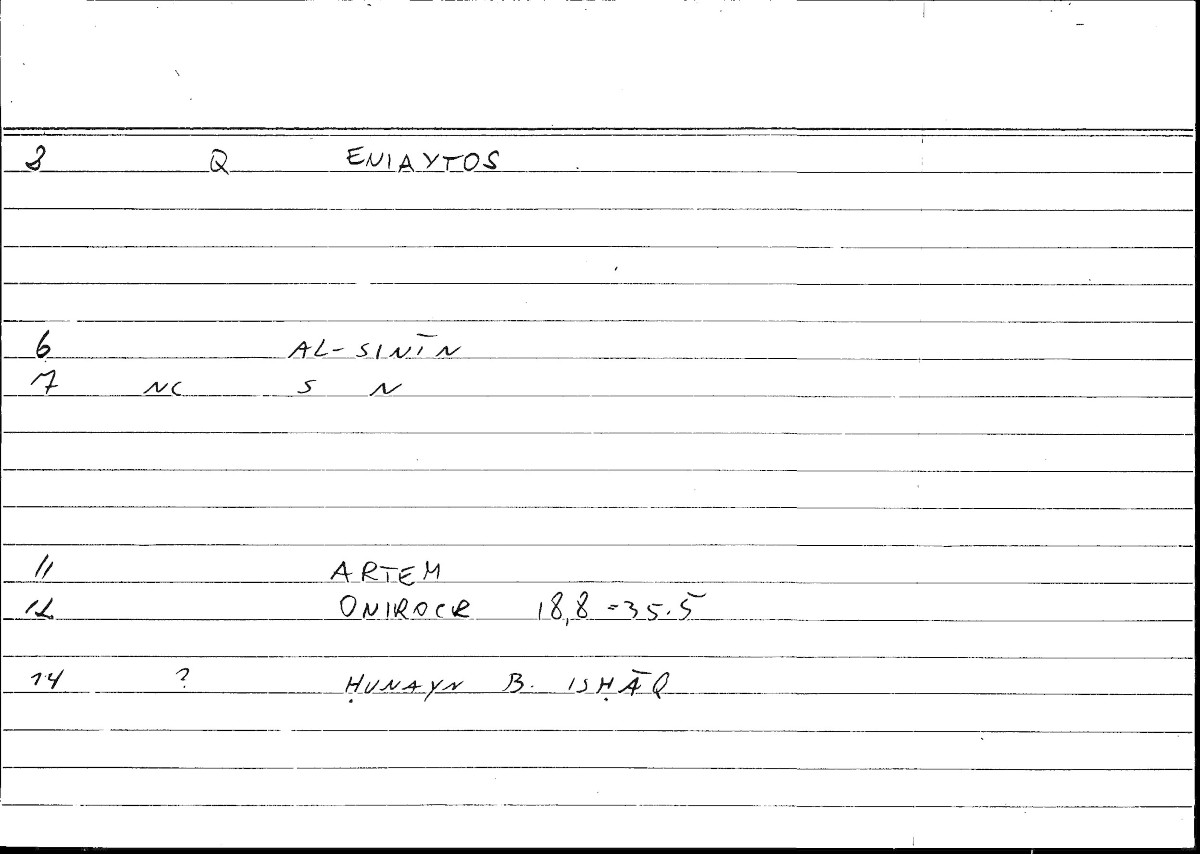 3 Q ENIAYTOS
6 AL-SINĪN
7 NC S N
11 ARTEM
12 ONIROCR 18,8=35.5
14 ? ḤUNAYN B. ISḤĀQ